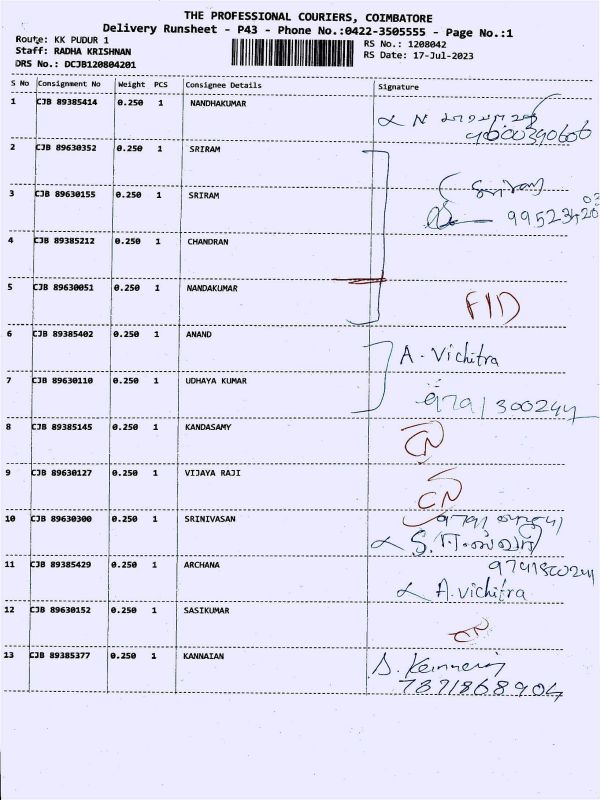 THE PROFESSIONAL COURIERS, COIMBATORE
Delivery Runsheet - P43 - Phone No.:0422-3505555 - Page No.:1
Route: KK PUDUR 1
RS No.: 1208042
Staff: RADHA KRISHNAN
RS Date: 17-Jul-2023
DRS No.: DCJB120804201
S No Consignment No Weight PCS Consignee Details Signature
1 CJB 89385414 0.250 1 NANDHAKUMAR
2 CJB 89630352 0.250 1 SRIRAM
3 CJB 89630155 0.250 1 SRIRAM Sriram
4 CJB 89385212 0.250 1 CHANDRAN
5 CJB 89630051 0.250 1 NANDAKUMAR
6 CJB 89385402 0.250 1 ANAND A. Vichitra
7 CJB 89630110 0.250 1 UDHAYA KUMAR 9791300244
8 CJB 89385145 0.250 1 KANDASAMY CN
9 CJB 89630127 0.250 1 VIJAYA RAJI CN
10 CJB 89630300 0.250 1 SRINIVASAN
11 CJB 89385429 0.250 1 ARCHANA
A. vichitra
12 CJB 89630152 0.250 1 SASIKUMAR CN
13 CJB 89385377 0.250 1 KANNAIAN
7871868904